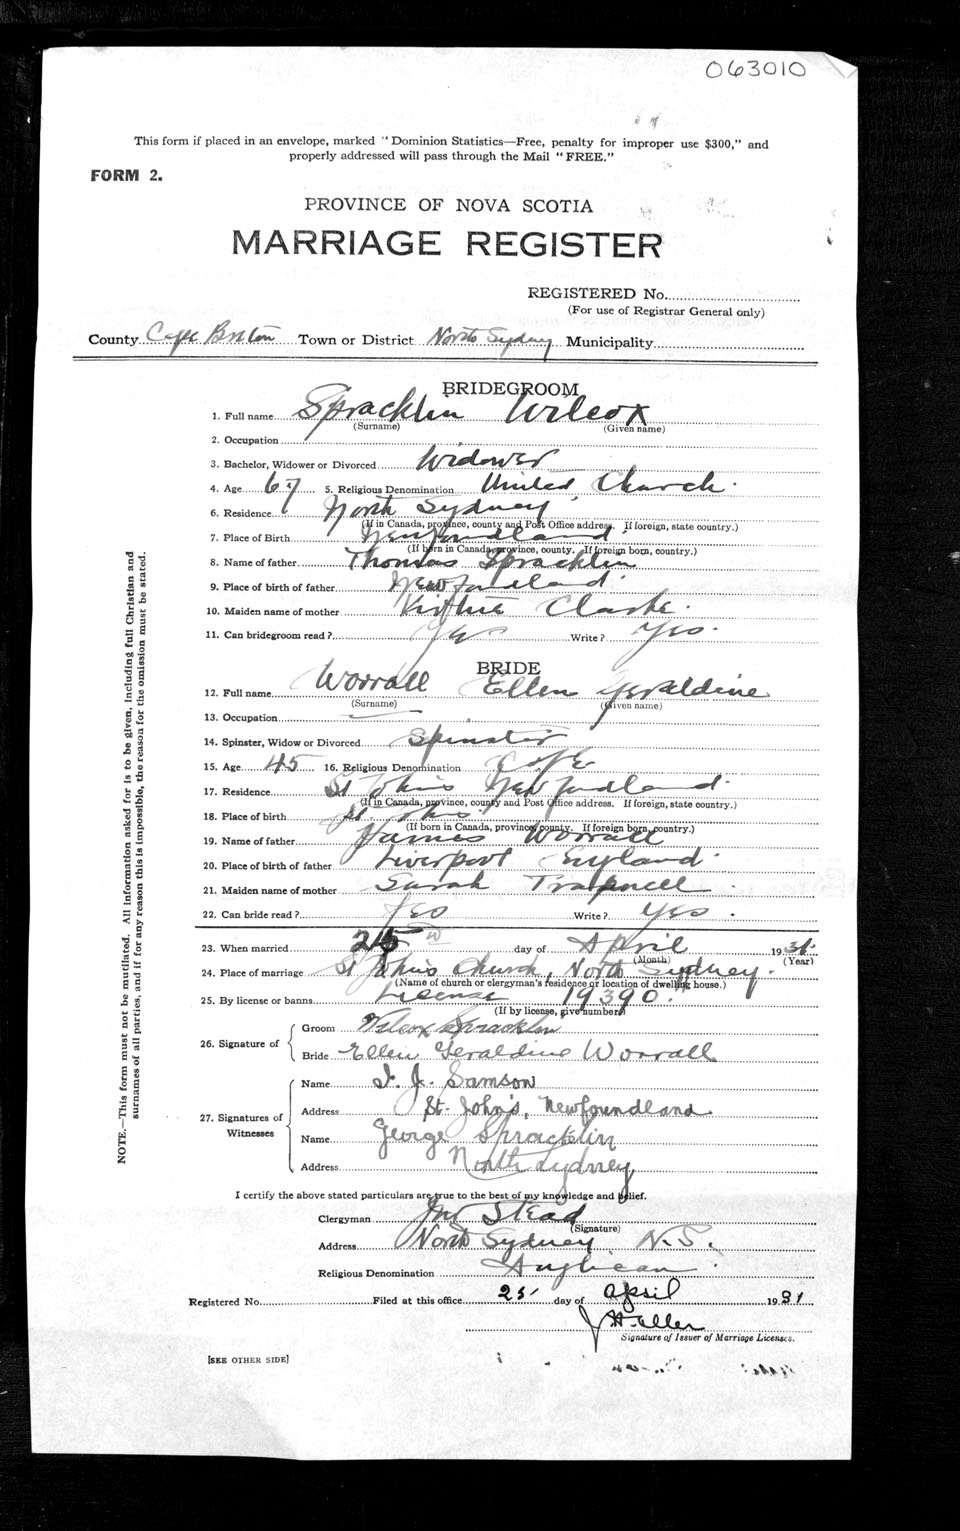 063010
This form if placed in an envelope, marked "Dominion Statistics—Free, penalty for improper use $300," and
properly addressed will pass through the Mail "FREE."
FORM 2.
PROVINCE OF NOVA SCOTIA
MARRIAGE REGISTER
REGISTERED No.
(For use of Registrar General only)
County Cape Breton Town or District North Sydney Municipality
BRIDEGROOM
1. Full name Spracklin Wilcox
(Surname) (Given name)
2. Occupation
3. Bachelor, Widower or Divorced Widower
4. Age 67 5. Religious Denomination United Church
6. Residence North Sydney
(If in Canada, province, county and Post Office address. If foreign, state country.)
7. Place of Birth Newfoundland
(If born in Canada, province, county. If foreign born, country.)
8. Name of father Thomas Spracklin
9. Place of birth of father Newfoundland
10. Maiden name of mother Virtue Clarke
11. Can bridegroom read? Yes Write? Yes.
BRIDE
12. Full name Worrall Ellen Geraldine
(Surname) (Given name)
13. Occupation
14. Spinster, Widow or Divorced Spinster
15. Age 45 16. Religious Denomination C of E
17. Residence St Johns Newfoundland
(If in Canada, province, county and Post Office address. If foreign, state country.)
18. Place of birth St. Johns
(If born in Canada, province, county. If foreign born, country.)
19. Name of father James Worrall
20. Place of birth of father Liverpool England
21. Maiden name of mother Sarah Trapnell
22. Can bride read? Yes Write? Yes.
23. When married 25 day of April 1931
(Month) (Year)
24. Place of marriage St John's Church, North Sydney.
(Name of church or clergyman's residence or location of dwelling house.)
25. By license or banns License 19390.
(If by license, give number)
26. Signature of
Groom Wilcox Spracklin
Bride Ellen Geraldine Worrall
27. Signatures of Witnesses
Name J. J. Samson
Address St. John's, Newfoundland.
Name George Spracklin
Address North Sydney
I certify the above stated particulars are true to the best of my knowledge and belief.
Clergyman Stead
(Signature)
Address North Sydney N.S.
Religious Denomination Anglican
Registered No. Filed at this office 25 day of April 1931
Signature of Issuer of Marriage Licenses.
[SEE OTHER SIDE]
NOTE.—This form must not be mutilated. All information asked for is to be given, including full Christian and
surnames of all parties, and if for any reason this is impossible, the reason for the omission must be stated.